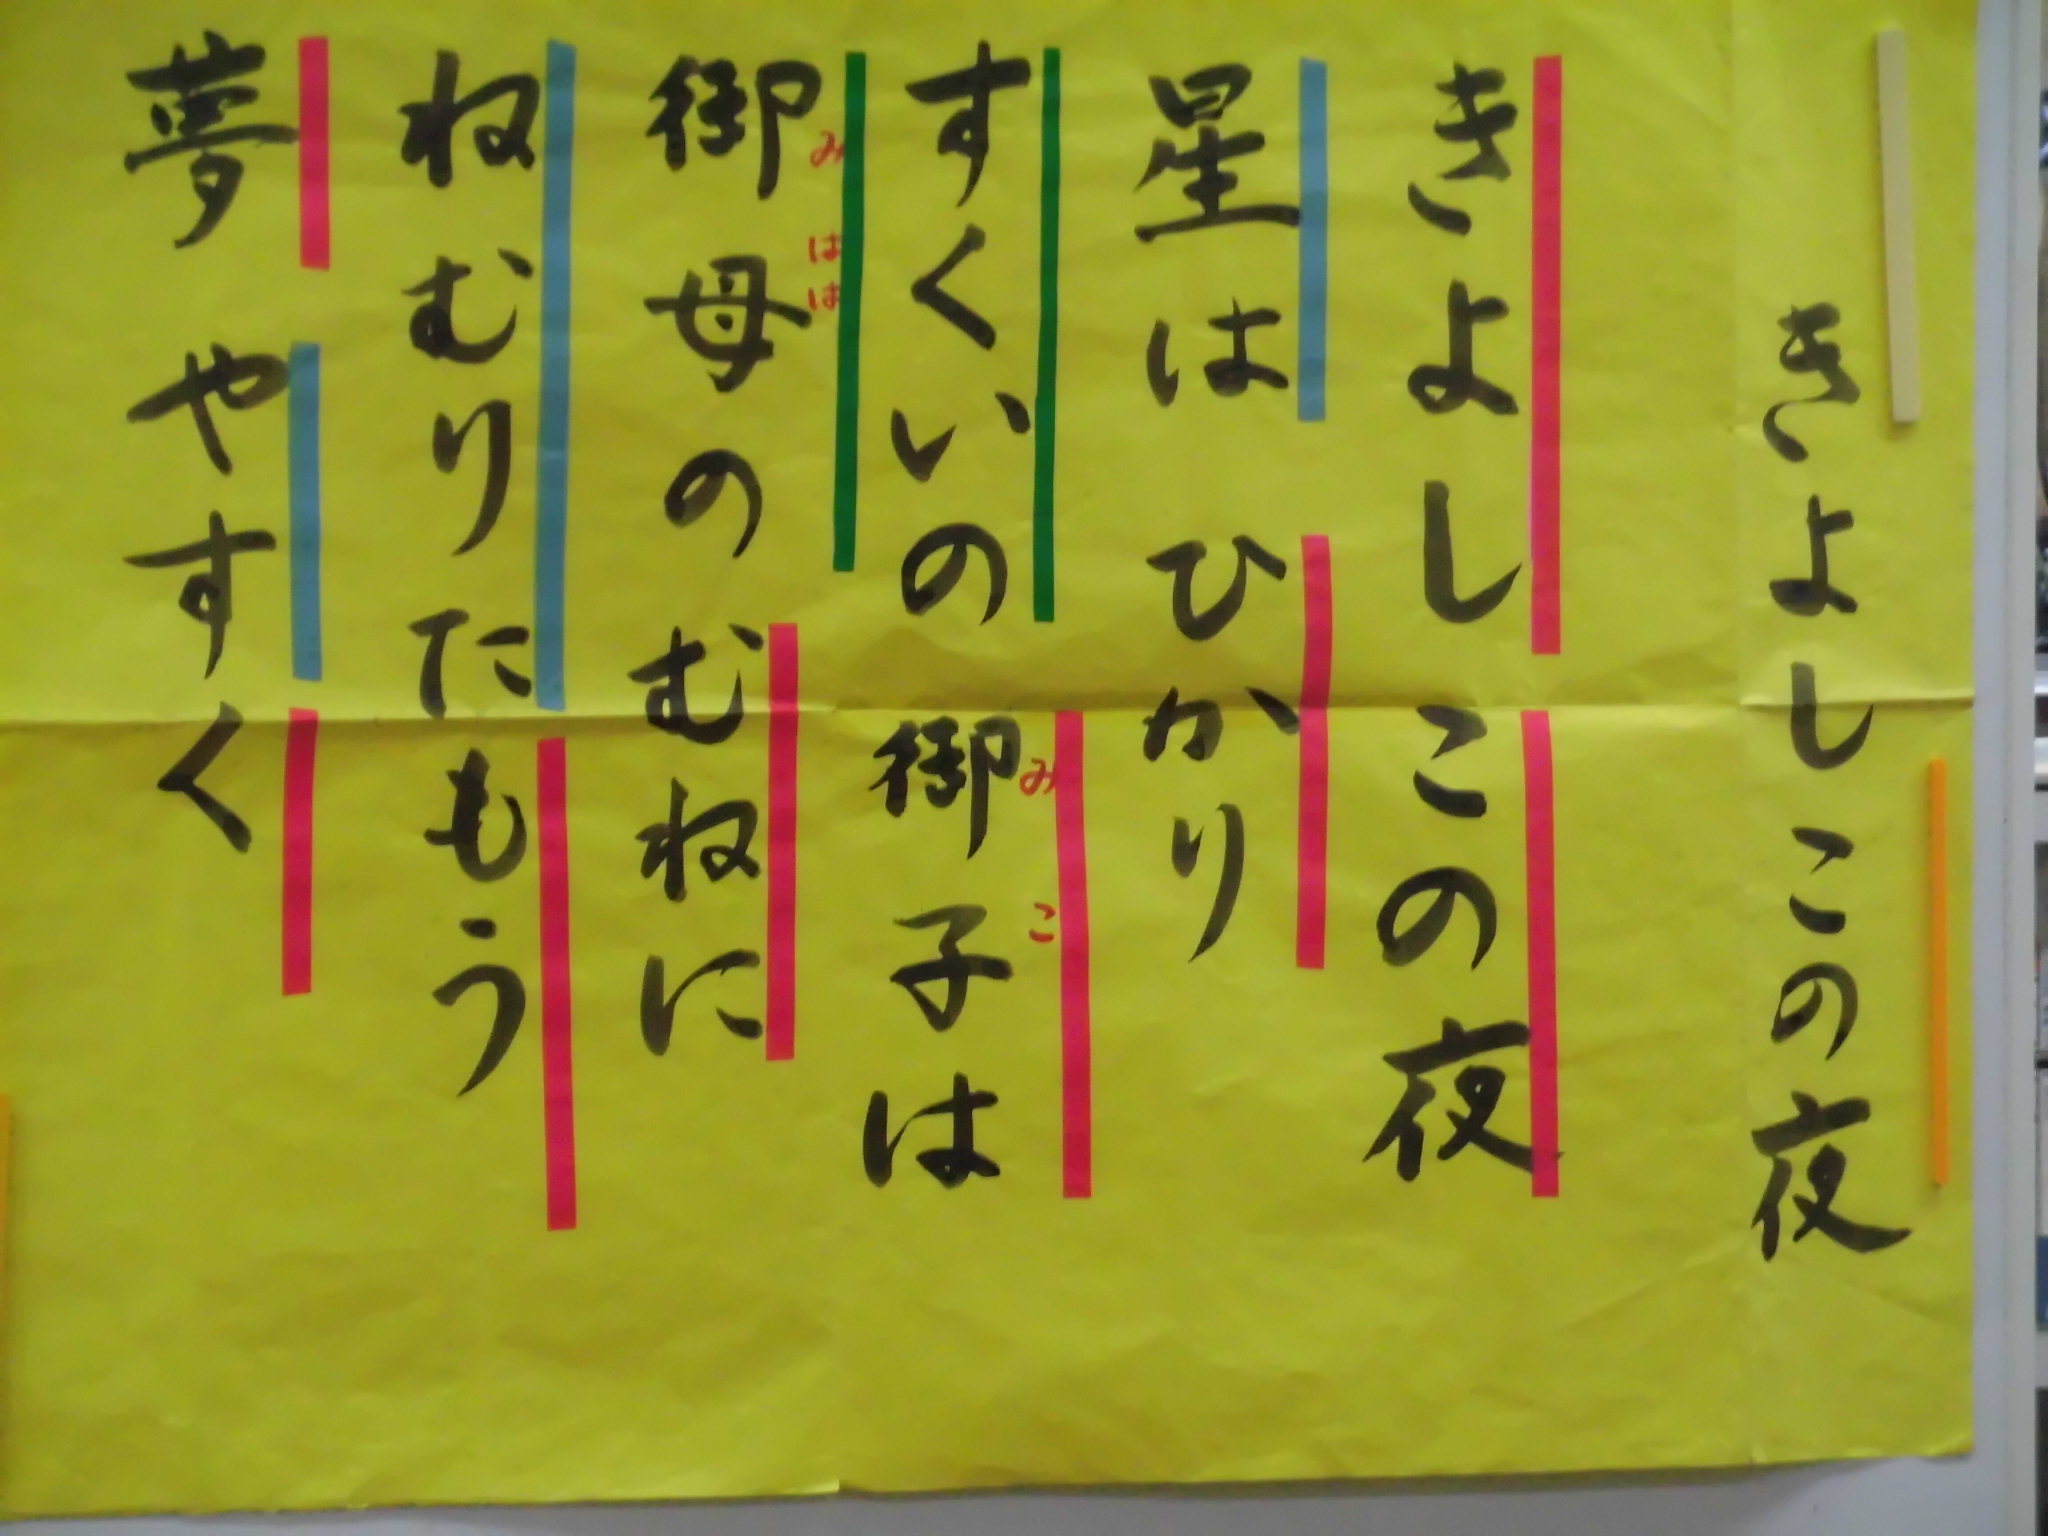 きよしこの夜
きよしこの夜
星はひかり
すくいの御子は
みこ
御母のむねに
みはは
ねむりたもう
夢やすく